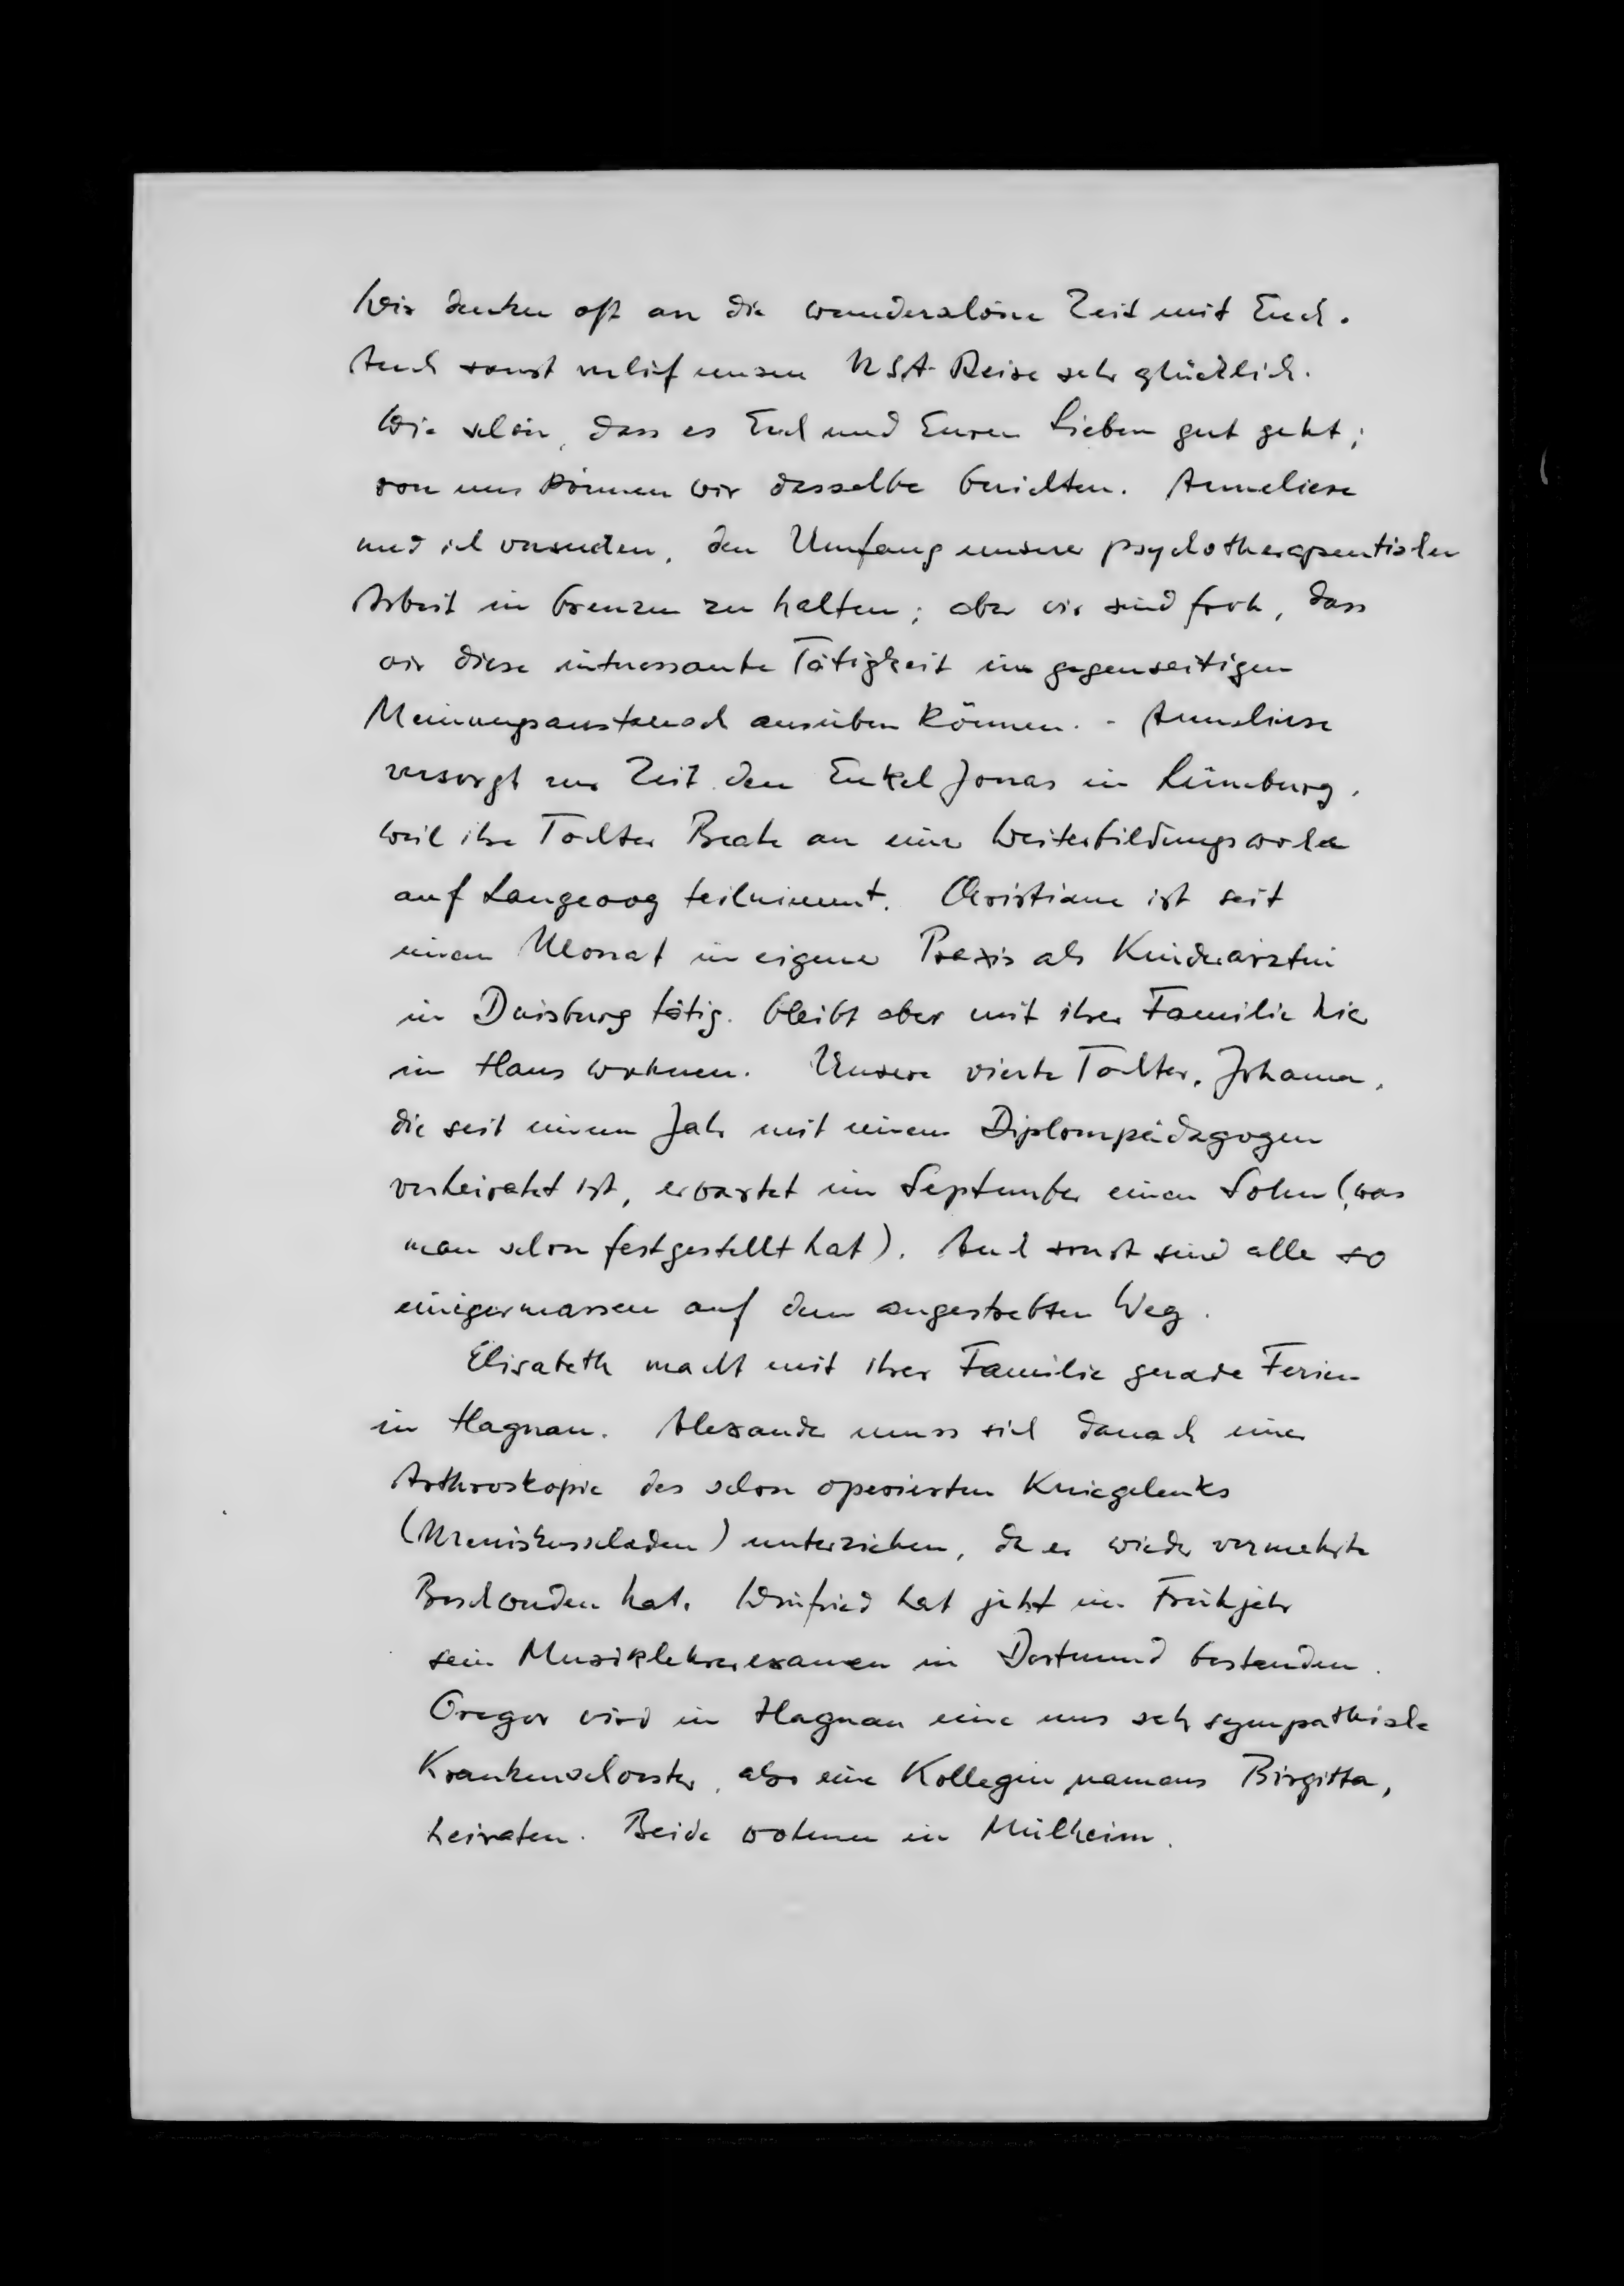 Wir denken oft an die wunderschöne Zeit mit Euch.
Auch sonst verlief unsere USA-Reise sehr glücklich.
Wie schön, dass es Euch und Euren Lieben gut geht;
von uns können wir dasselbe berichten. Anneliese
und ich versuchen, den Umfang unserer psychotherapeutischen
Arbeit in Grenzen zu halten; aber wir sind froh, dass
wir diese interessante Tätigkeit im gegenseitigen
Meinungsaustausch ausüben können. - Anneliese
versorgt zur Zeit den Enkel Jonas in Lüneburg,
weil ihre Tochter Beate an einer Weiterbildungswoche
auf Langeoog teilnimmt. Christiane ist seit
einem Monat in eigener Praxis als Kinderärztin
in Duisburg tätig, bleibt aber mit ihrer Familie hier
im Haus wohnen. Unsere vierte Tochter, Johanna,
die seit einem Jahr mit einem Diplompädagogen
verheiratet ist, erwartet im September einen Sohn (was
man schon festgestellt hat). Auch sonst sind alle so
einigermassen auf dem angestrebten Weg.
Elisabeth macht mit ihrer Familie gerade Ferien
in Hagnau. Alexander muss sich danach einer
Arthroskopie des schon operierten Kniegelenks
(Meniskusschaden) unterziehen, da er wieder vermehrte
Beschwerden hat. Winfried hat jetzt im Frühjahr
sein Musiklehrerexamen in Dortmund bestanden.
Gregor wird in Hagnau eine uns sehr sympathische
Krankenschwester, also eine Kollegin namens Birgitta,
heiraten. Beide wohnen in Mülheim.